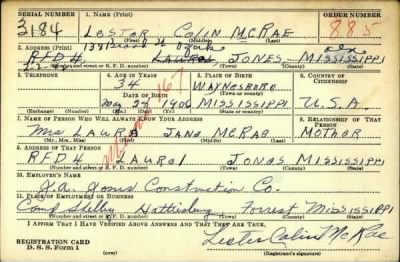 SERIAL NUMBER 1. NAME (Print) ORDER NUMBER
3184 LESTER COLIN MCRAE 885
(First) (Middle) (Last)
2. ADDRESS (Print)
RFD 4 LAUREL JONES MISSISSIPPI
(Number and street or R. F. D. number) (Town) (County) (State)
3. TELEPHONE 4. AGE IN YEARS 5. PLACE OF BIRTH 6. COUNTRY OF CITIZENSHIP
34 WAYNESBORO
DATE OF BIRTH (Town or county)
May 1906 MISSISSIPPI U.S.A.
(Exchange) (Number) (Mo.) (Day) (Yr.) (State or country)
7. NAME OF PERSON WHO WILL ALWAYS KNOW YOUR ADDRESS 8. RELATIONSHIP OF THAT PERSON
Mrs LAURA JANE McRAE MOTHER
(Mr., Mrs., Miss) (First) (Middle) (Last)
9. ADDRESS OF THAT PERSON
RFD 4 LAUREL JONES MISSISSIPPI
(Number and street or R. F. D. number) (Town) (County) (State)
10. EMPLOYER'S NAME
J.A. Jones Construction Co.
11. PLACE OF EMPLOYMENT OR BUSINESS
Camp Shelby Hattiesburg Forrest MISSISSIPPI
(Number and street or R. F. D. number) (Town) (County) (State)
I AFFIRM THAT I HAVE VERIFIED ABOVE ANSWERS AND THAT THEY ARE TRUE.
REGISTRATION CARD
D. S. S. Form 1
Lester Colin McRae
(Registrant's signature)